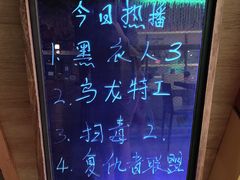 今日热播
1. 黑衣人3
2. 乌龙特工
3. 扫毒2.
4. 复仇者联盟